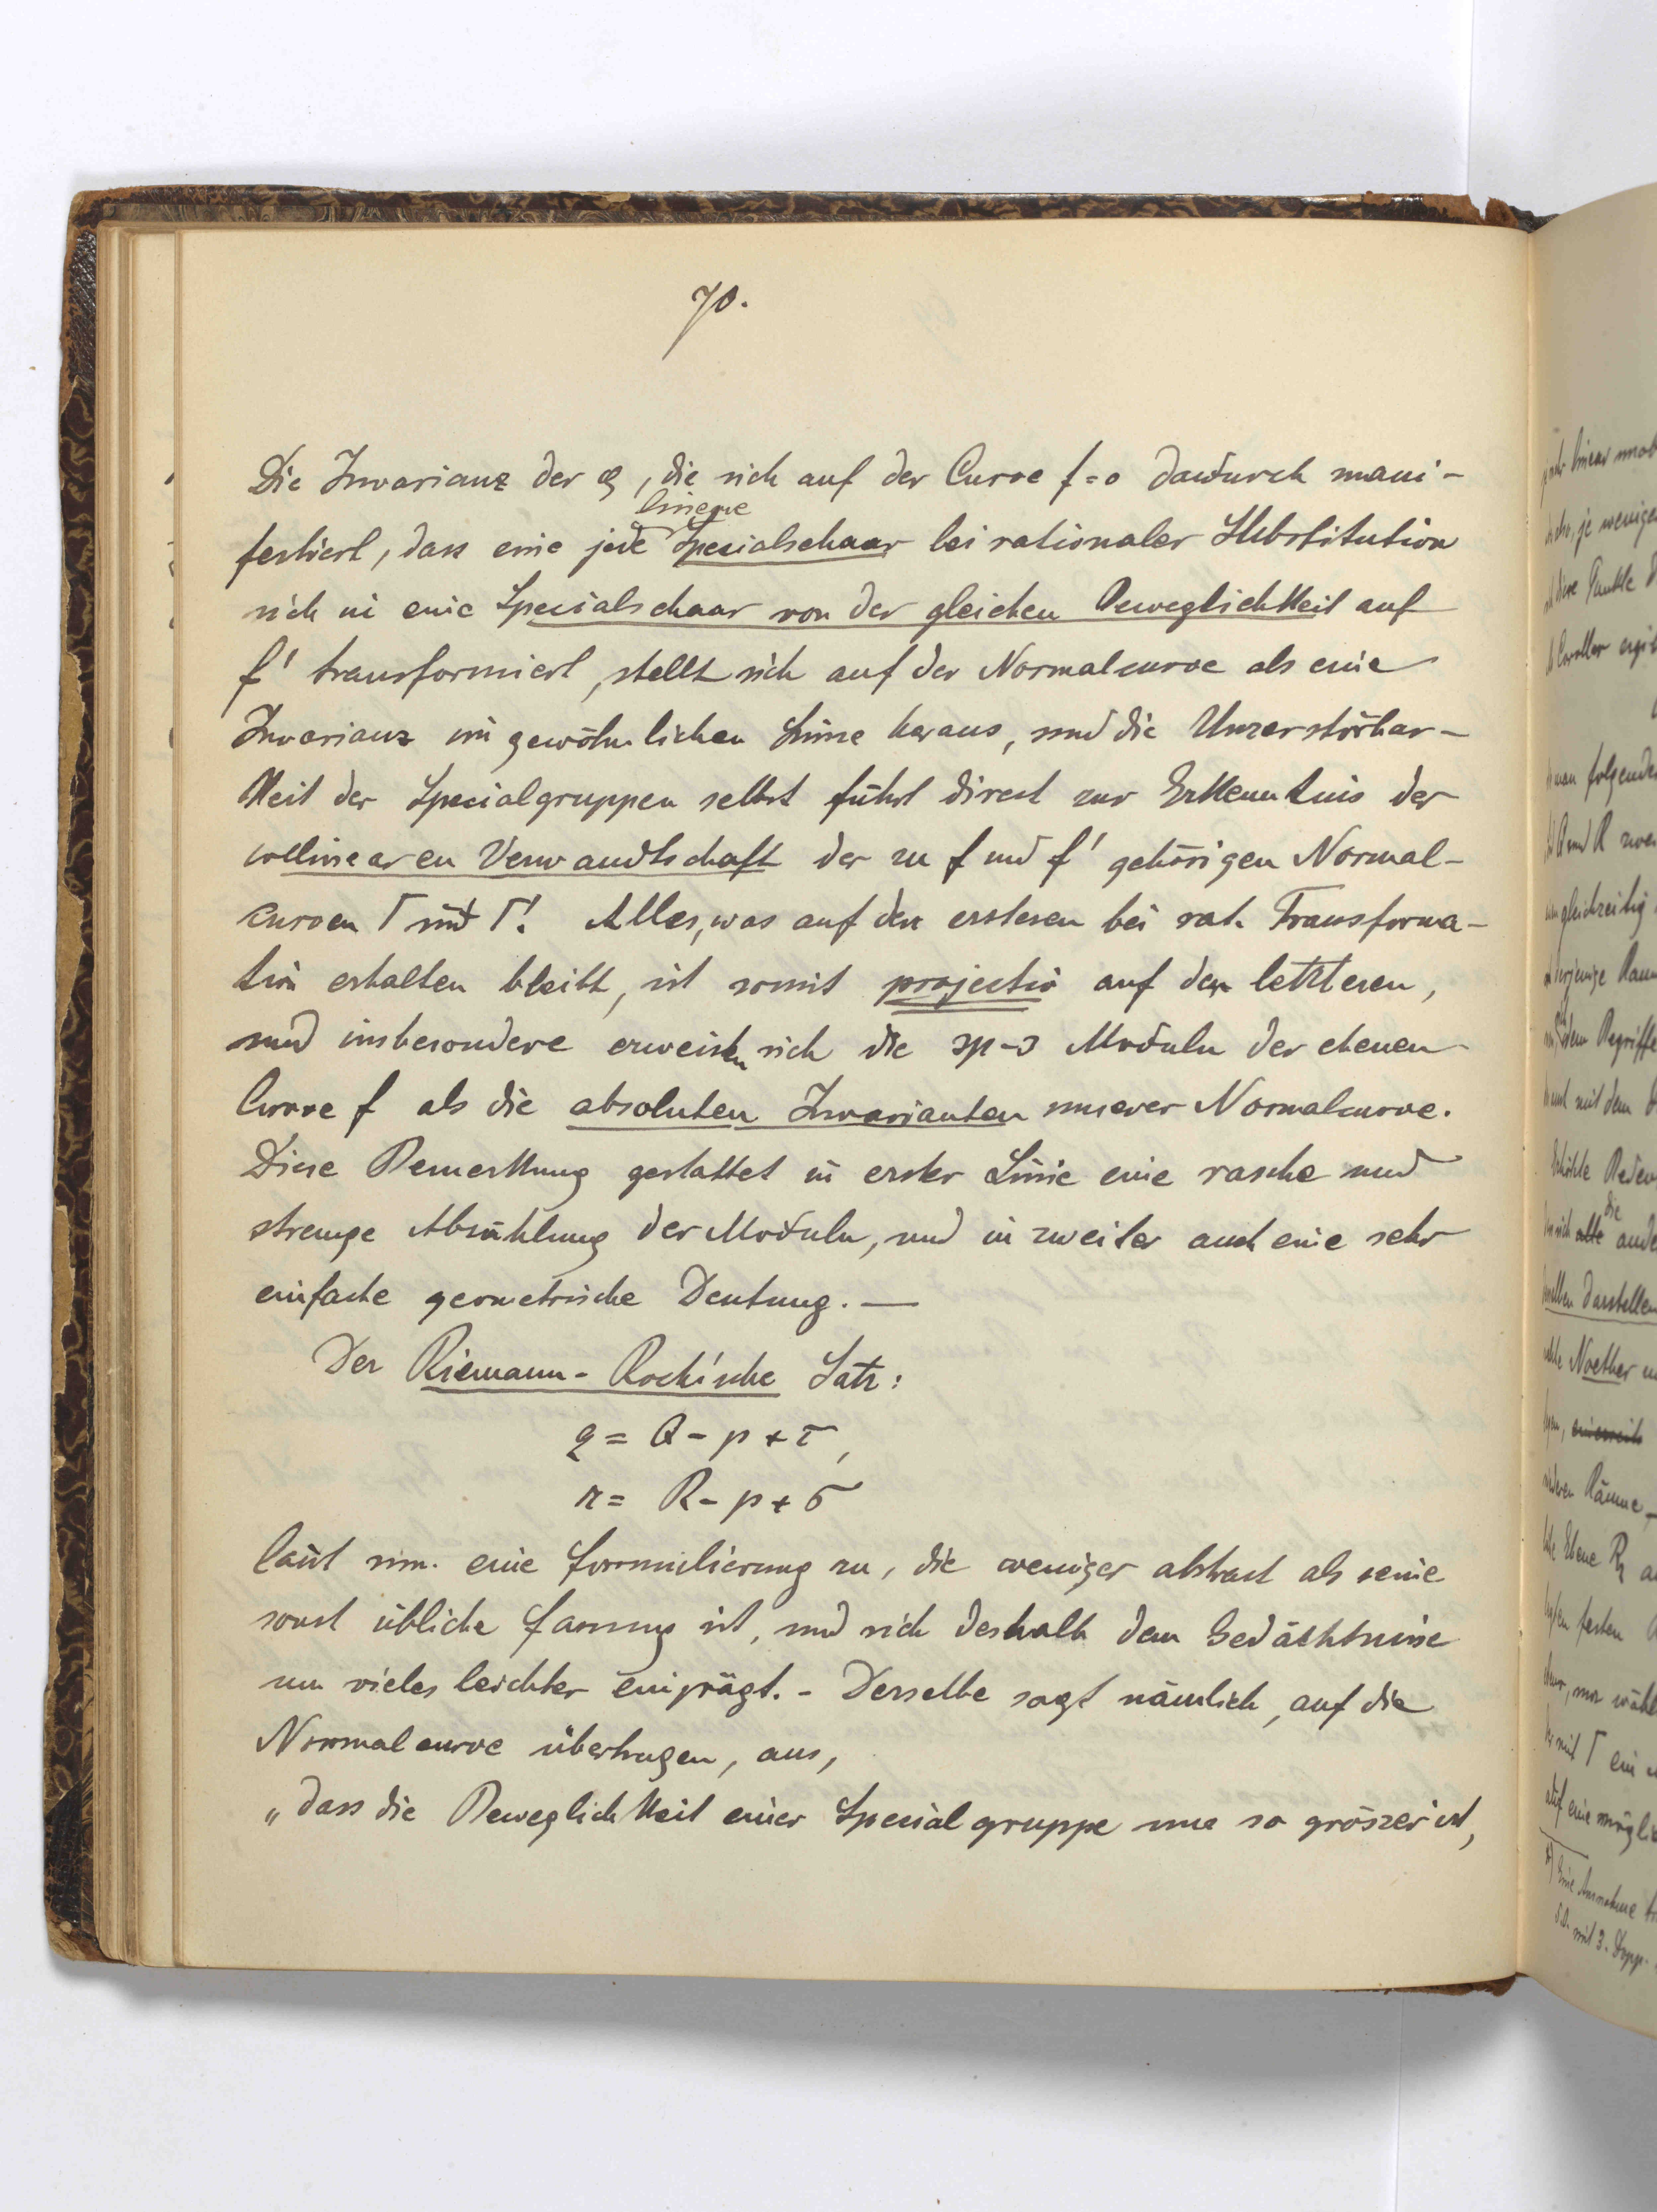 70.
Die Invarianz der φ, die sich auf der Curve f=0 dadurch mani-
festiert, dass eine jede lineare Specialschaar bei rationaler Substitution
sich in eine Specialschaar von der gleichen Beweglichkeit auf
f' transformiert, stellt sich auf der Normalcurve als eine
Invarianz im gewöhnlichen Sinne heraus, und die Unzerstörbar-
keit der Specialgruppen selbst führt direct zur Erkenntnis der
collinearen Verwandtschaft der zu f und f' gehörigen Normal-
curven Γ und Γ'. Alles, was auf den ersteren bei rat. Transforma-
tion erhalten bleibt, ist somit projectiv auf den letzteren,
und insbesondere erweisen sich die 3p-3 Moduln der ebenen
Curve f als die absoluten Invarianten unserer Normalcurve.
Diese Bemerkung gestattet in erster Linie eine rasche und
strenge Abzählung der Moduln, und in zweiter auch eine sehr
einfache geometrische Deutung. —
Der Riemann-Roch'sche Satz:
q = Q - p + τ,
r = R - p + σ
lässt nun eine Formulierung zu, die weniger abstract als seine
sonst übliche Fassung ist, und sich deshalb dem Gedächtnisse
um vieles leichter einprägt. - Derselbe sagt nämlich, auf die
Normalcurve übertragen, aus,
„dass die Beweglichkeit einer Specialgruppe um so grösser ist,